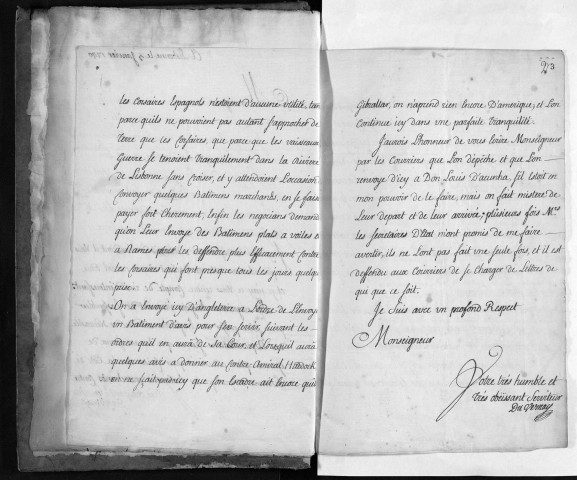 les Corsaires Espagnols n'estoient d'aucune utilité, tan
parce qu'ils ne pouvoient pas autant s'approcher de
terre que ces Corsaires, que parce que les vaisseaux
Guerre se tenoient tranquilement dans la Riviere
de Lisbonne sans Croiser, et y attendoient l'occasion
Convoyer quelques Batimens marchands, en se faisa
payer fort Cherement, enfin les negocians demand
qu'on Leur Envoye des Batimens plats a voiles e
a Rames pour les deffendre plus Efficacement contre
les Corsaires qui font presque tous les jours quelqu
prise.
On a Envoyé icy D'angleterre a L'ordre de L'Envoyé
un Batiment d'avis pour s'en servir, suivant les
ordres qu'il en aura de Sa Cour, et Lorsqu'il aura
quelques avis a donner au Contre Amiral Haddock
on ne sçait pas icy que son Escadre ait Encore quit
23
Gibraltar, on n'aprend rien encore D'amerique; et L'on
Continue icy dans une parfaite tranquilité.
J'aurois L'honneur de vous Ecrire Monseigneur
par les Couriers que L'on dépêche et que L'on
renvoye D'icy a Don Louis D'acunha, s'il Estoit en
mon pouvoir de le faire, mais on fait mistere de
Leur depart et de leur arrivée; plusieurs fois Mrs.
les Secretaires D'Etat m'ont promis de me faire
avertir, ils ne L'ont pas fait une seule fois, et il est
deffendu aux Couriers de se Charger de Lettres de
qui que ce soit.
Je Suis avec un profond Respect
Monseigneur
Votre trés humble et
trés obeissant Serviteur
Du Vernay